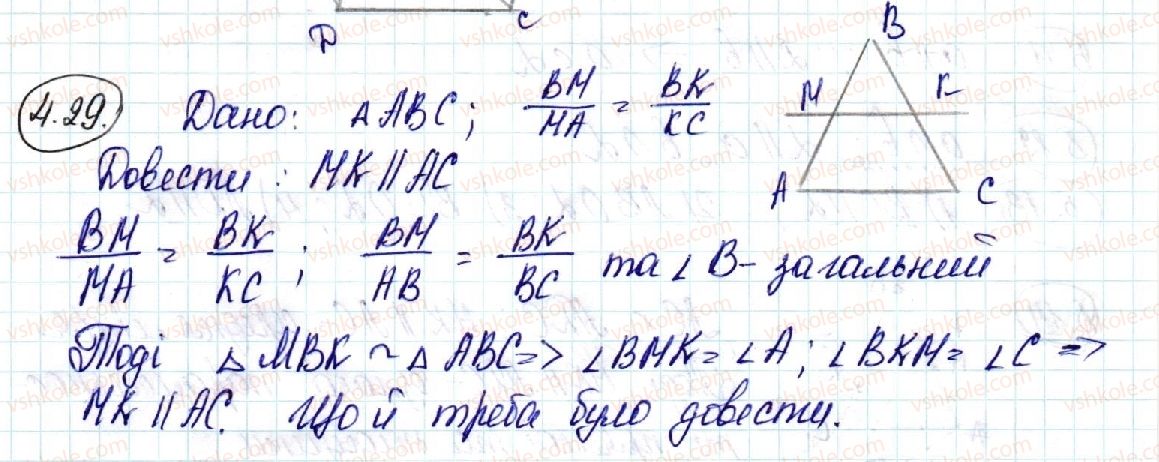 D C
4.29. Дано: △ABC; BM/MA = BK/KC
B
M K
A C
Довести: MK || AC
BM/MA = BK/KC; BM/AB = BK/BC та ∠B - загальний
Тоді △MBK ~ △ABC => ∠BMK = ∠A; ∠BKM = ∠C =>
MK || AC. Що й треба було довести.
vshkole.com